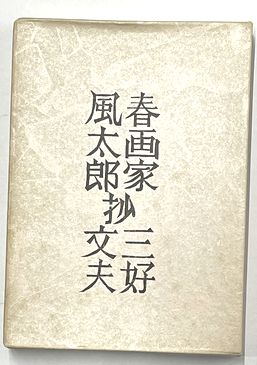 春画家
風太郎抄
三好
文夫